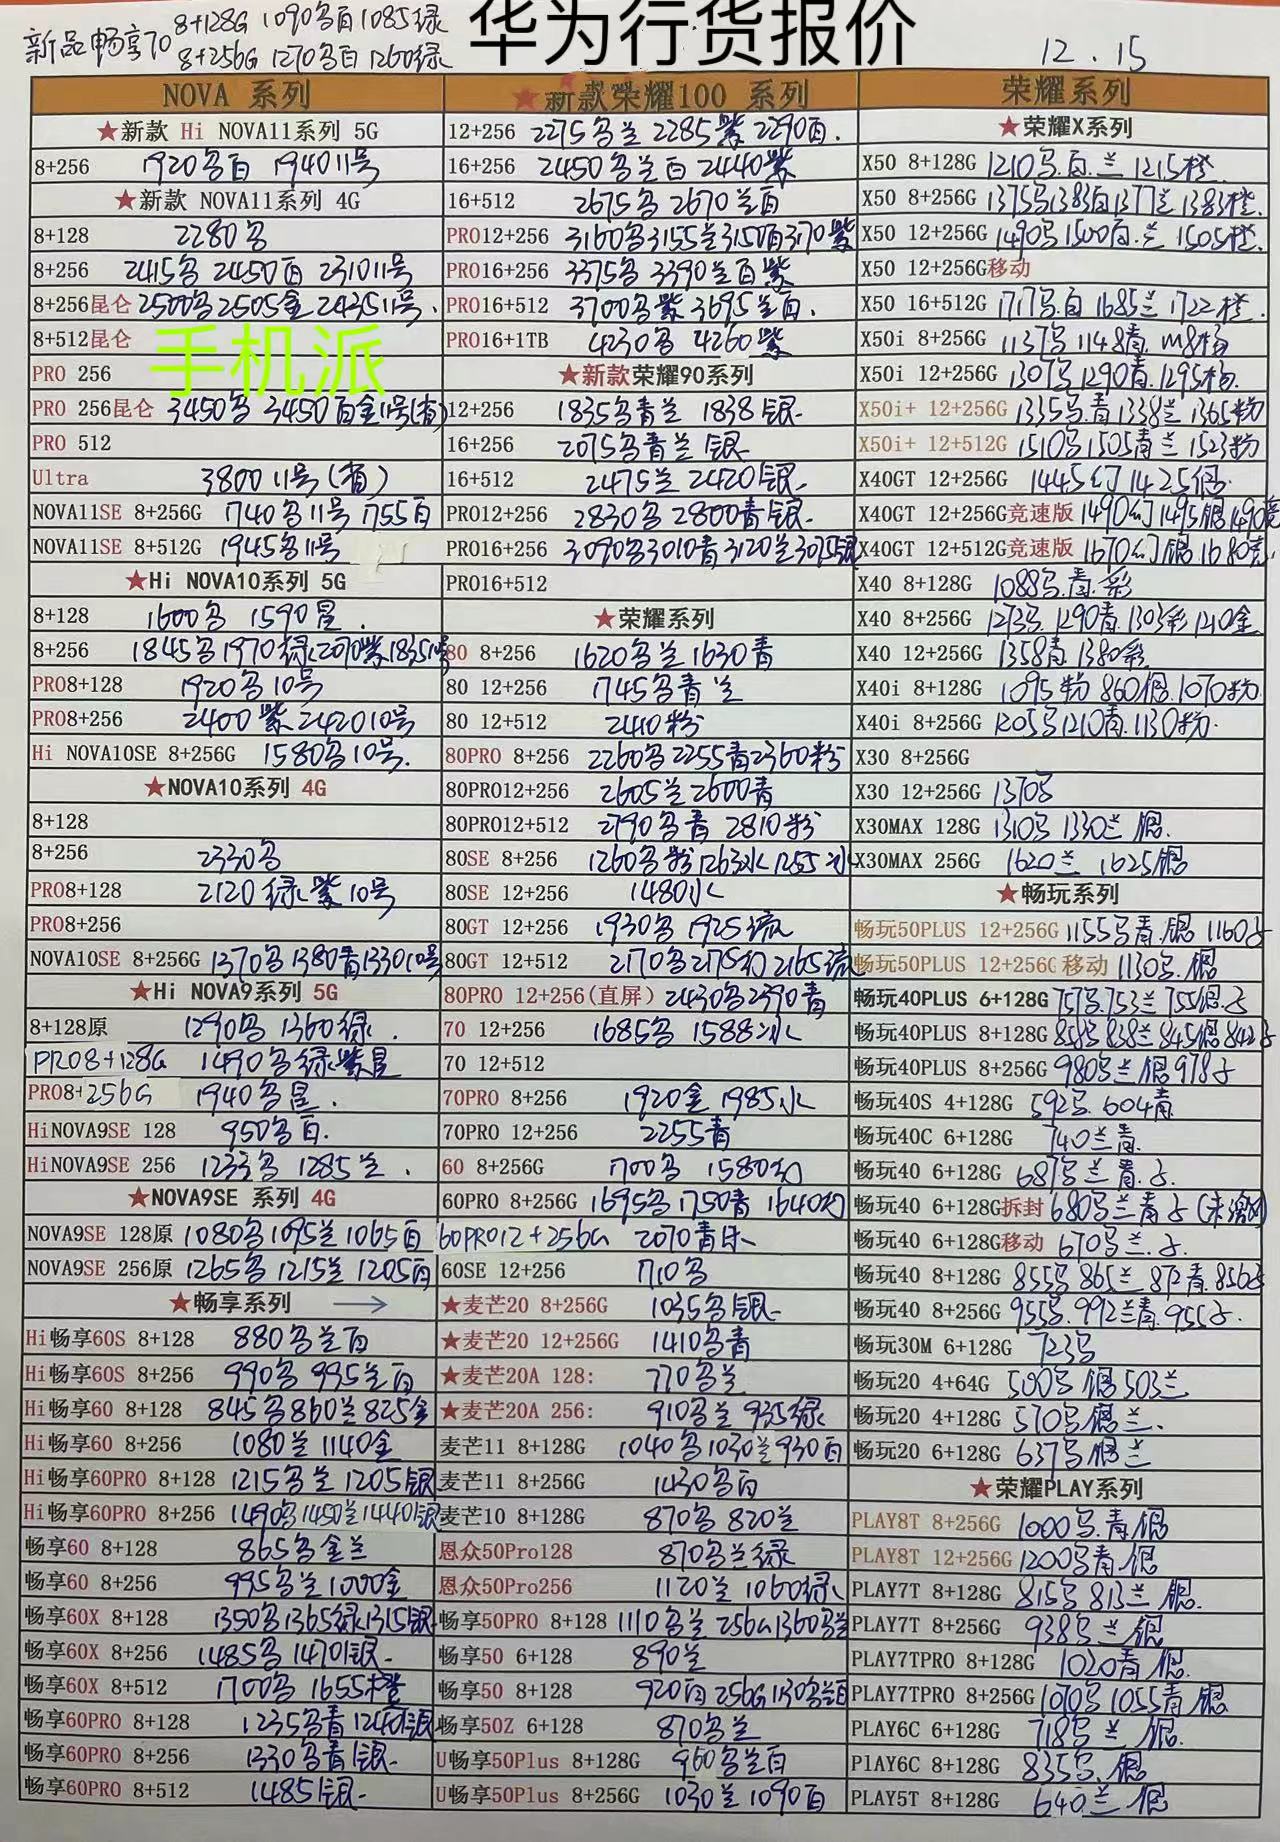 华为行货报价
新品畅享70 8+128G 1090名百1085绿
8+256G 1270名白1260绿
12.15
手机派
NOVA 系列
★新款 Hi NOVA11系列 5G
8+256 1920名百 1940 11号
★新款 NOVA11系列 4G
8+128 2280名
8+256 2415名 2450百 2310 11号
8+256昆仑 2500名2505金 2435 11号.
8+512昆仑
PRO 256
PRO 256昆仑 3450名 3450百金11号
PRO 512
Ultra 3800 11号
NOVA11SE 8+256G 1740名11号1755百
NOVA11SE 8+512G 1945名11号
★Hi NOVA10系列 5G
8+128 1600名 1590星.
8+256 1845名1970绿2070紫1835
PRO8+128 1920名10号
PRO8+256 2400紫2420 10号
Hi NOVA10SE 8+256G 1580名10号.
★NOVA10系列 4G
8+128
8+256 2330名
PRO8+128 2120绿紫10号
PRO8+256
NOVA10SE 8+256G 1370名1380青1330 10号
★Hi NOVA9系列 5G
8+128原 1290名 1360绿.
PRO8+128G 1490名绿紫星
PRO8+256G 1940名星.
HiNOVA9SE 128 950名百.
HiNOVA9SE 256 1233名 1285兰.
★NOVA9SE 系列 4G
NOVA9SE 128原 1080名1095兰1065百
NOVA9SE 256原 1265名1215兰1205百
★畅享系列 →
Hi畅享60S 8+128 880名兰百
Hi畅享60S 8+256 990名995兰百
Hi畅享60 8+128 845名860兰825金
Hi畅享60 8+256 1080兰1140金
Hi畅享60PRO 8+128 1215名兰1205银
Hi畅享60PRO 8+256 1490名1450兰1440银
畅享60 8+128 865名金兰
畅享60 8+256 995名兰1000金
畅享60X 8+128 1350名1365绿1315银
畅享60X 8+256 1485名1470银.
畅享60X 8+512 1700名1655橙
畅享60PRO 8+128 1235名青1240银
畅享60PRO 8+256 1330名青银.
畅享60PRO 8+512 1485银.
★新款荣耀100 系列
12+256 2275名兰2285紫2290百.
16+256 2450名兰白2440紫
16+512 2675名2670兰百
PRO12+256 3160名3155兰3150百3170紫
PRO16+256 3375名3390兰百紫
PRO16+512 3700名紫3695兰百.
PRO16+1TB 4230名 4260紫
★新款荣耀90系列
12+256 1835名青兰 1838银.
16+256 2075名青兰银.
16+512 2475兰2420银.
PRO12+256 2830名2800青银.
PRO16+256 3090名3010青3120兰3075银
PRO16+512
★荣耀系列
80 8+256 1620名兰1630青
80 12+256 1745名青兰
80 12+512 2410粉
80PRO 8+256 2260名2255青2360粉
80PRO12+256 2605兰2600青
80PRO12+512 2790名青 2810粉
80SE 8+256 1260名粉1263水1255
80SE 12+256 1480水
80GT 12+256 1930名 1925流
80GT 12+512 2170名2175幻2165流
80PRO 12+256(直屏) 2430名2390青
70 12+256 1685名 1588冰
70 12+512
70PRO 8+256 1920金 1985水
70PRO 12+256 2255青
60 8+256G 1700名 1580幻
60PRO 8+256G 1695名1750青 1640幻
60PRO12+256G 2070青
60SE 12+256 1710名
★麦芒20 8+256G 1035名银.
★麦芒20 12+256G 1410名青
★麦芒20A 128: 770名兰
★麦芒20A 256: 910名兰935绿
麦芒11 8+128G 1040名1030兰930百
麦芒11 8+256G 1430名百
麦芒10 8+128G 870名820兰
恩众50Pro128 870名兰绿
恩众50Pro256 1120兰1060绿.
畅享50PRO 8+128 1110名兰256G1360名兰
畅享50 6+128 890兰
畅享50 8+128 920百256G1130名兰百
畅享50Z 6+128 870名兰
U畅享50Plus 8+128G 960名兰百
U畅享50Plus 8+256G 1030兰1090百
荣耀系列
★荣耀X系列
X50 8+128G 1210名.百.兰1215橙
X50 8+256G 1375名1383百1377兰1383橙.
X50 12+256G 1490名1500百.兰1505橙.
X50 12+256G移动
X50 16+512G 1717名.百1685兰1722橙.
X50i 8+256G 1137名1148青
X50i 12+256G 1290青.1295粉.
X50i+ 12+256G 1335名.青1338兰1365粉
X50i+ 12+512G 1510名1505青兰1523粉
X40GT 12+256G 1445幻1425银.
X40GT 12+256G竞速版 1490幻1495银1490竞
X40GT 12+512G竞速版 1670幻银1680竞
X40 8+128G 1088名.青.彩
X40 8+256G 1273名.1290青1303彩1210金
X40 12+256G 1358青1380彩
X40i 8+128G 1095粉860银.1070粉
X40i 8+256G 1205名1210青.1130粉.
X30 8+256G
X30 12+256G 1370名
X30MAX 128G 1310名1330兰银.
X30MAX 256G 1620兰 1625银
★畅玩系列
畅玩50PLUS 12+256G 1155名青.银1160
畅玩50PLUS 12+256G 移动 1130名.银
畅玩40PLUS 6+128G 757名.753兰755银.
畅玩40PLUS 8+128G 858名838兰845银842
畅玩40PLUS 8+256G 980名兰银978
畅玩40S 4+128G 592名.604青
畅玩40C 6+128G 740兰青.
畅玩40 6+128G 687名兰青.
畅玩40 6+128G拆封 680名兰青
畅玩40 6+128G移动 670名兰.
畅玩40 8+128G 855名865兰872青.856
畅玩40 8+256G 955名.992兰青.955
畅玩30M 6+128G 723名
畅玩20 4+64G 500名银503兰
畅玩20 4+128G 570名银兰.
畅玩20 6+128G 637名银兰
★荣耀PLAY系列
PLAY8T 8+256G 1000名.青.银
PLAY8T 12+256G 1200名青.银
PLAY7T 8+128G 815名813兰银.
PLAY7T 8+256G 938名兰银
PLAY7TPRO 8+128G 1020青银.
PLAY7TPRO 8+256G 1070名1055青银
PLAY6C 6+128G 718名兰银.
PlAY6C 8+128G 835名.银
PLAY5T 8+128G 640.兰银